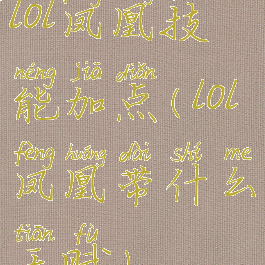 lol凤凰技
néng jiā diǎn
能加点(lol
fèng huáng dài shí me
凤凰带什么
tiān fù
天赋)